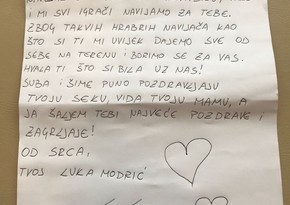 I MI SVI IGRAČI NAVIJAMO ZA TEBE.
ZBOG TAKVIH HRABRIH NAVIJAČA KAO
ŠTO SI TI MI UVIJEK DAJEMO SVE OD
SEBE NA TERENU I BORIMO SE ZA VAS.
HVALA TI ŠTO SI BILA UZ NAS!
SUBA I ŠIME PUNO POZDRAVLJAJU
TVOJU SEKU, VIDA TVOJU MAMU, A
JA ŠALJEM TEBI NAJVEĆE POZDRAVE I
ZAGRLJAJE!
OD SRCA,
TVOJ LUKA MODRIĆ